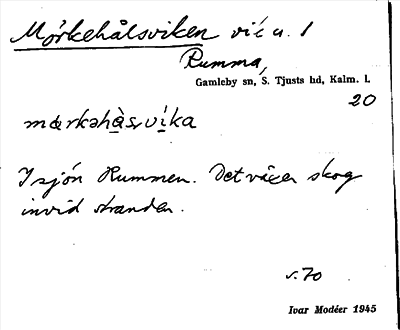 Mörkehålsviken vik u. 1
Rumma,
Gamleby sn, S. Tjusts hd, Kalm. l.
20
mœrkəhà̱sv̱íka
I sjön Rummen. Det växer skog
invid stranden.
s. 70
Ivar Modéer 1945